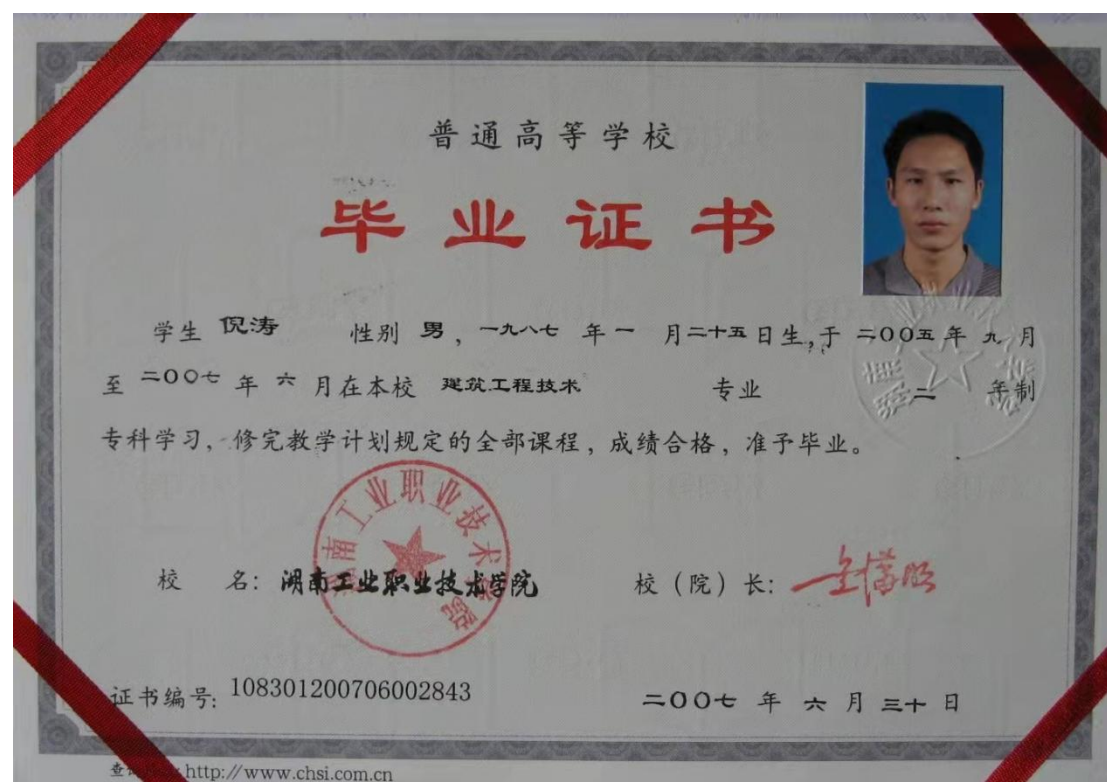 普通高等学校
毕业证书
学生 倪涛 性别 男，一九八七 年 一 月二十五日生，于 二〇〇五年 九 月
至 二〇〇七 年 六 月在本校 建筑工程技术 专业 二 年制
专科学习，修完教学计划规定的全部课程，成绩合格，准予毕业。
湖南工业职业技术学院
校 名：湖南工业职业技术学院 校（院）长：
证书编号：108301200706002843 二〇〇七 年 六 月 三十 日
http://www.chsi.com.cn